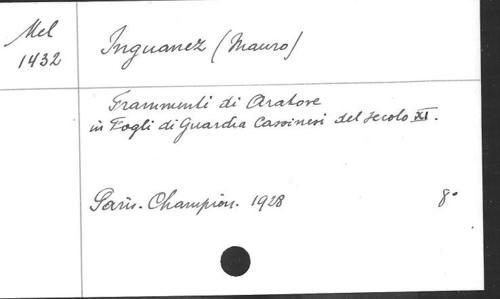 Mel
1432
Inguanez (Mauro)
Frammenti di Aratore
in Fogli di Guardia Cassinesi del secolo XI.
Paris. Champion. 1928 8°